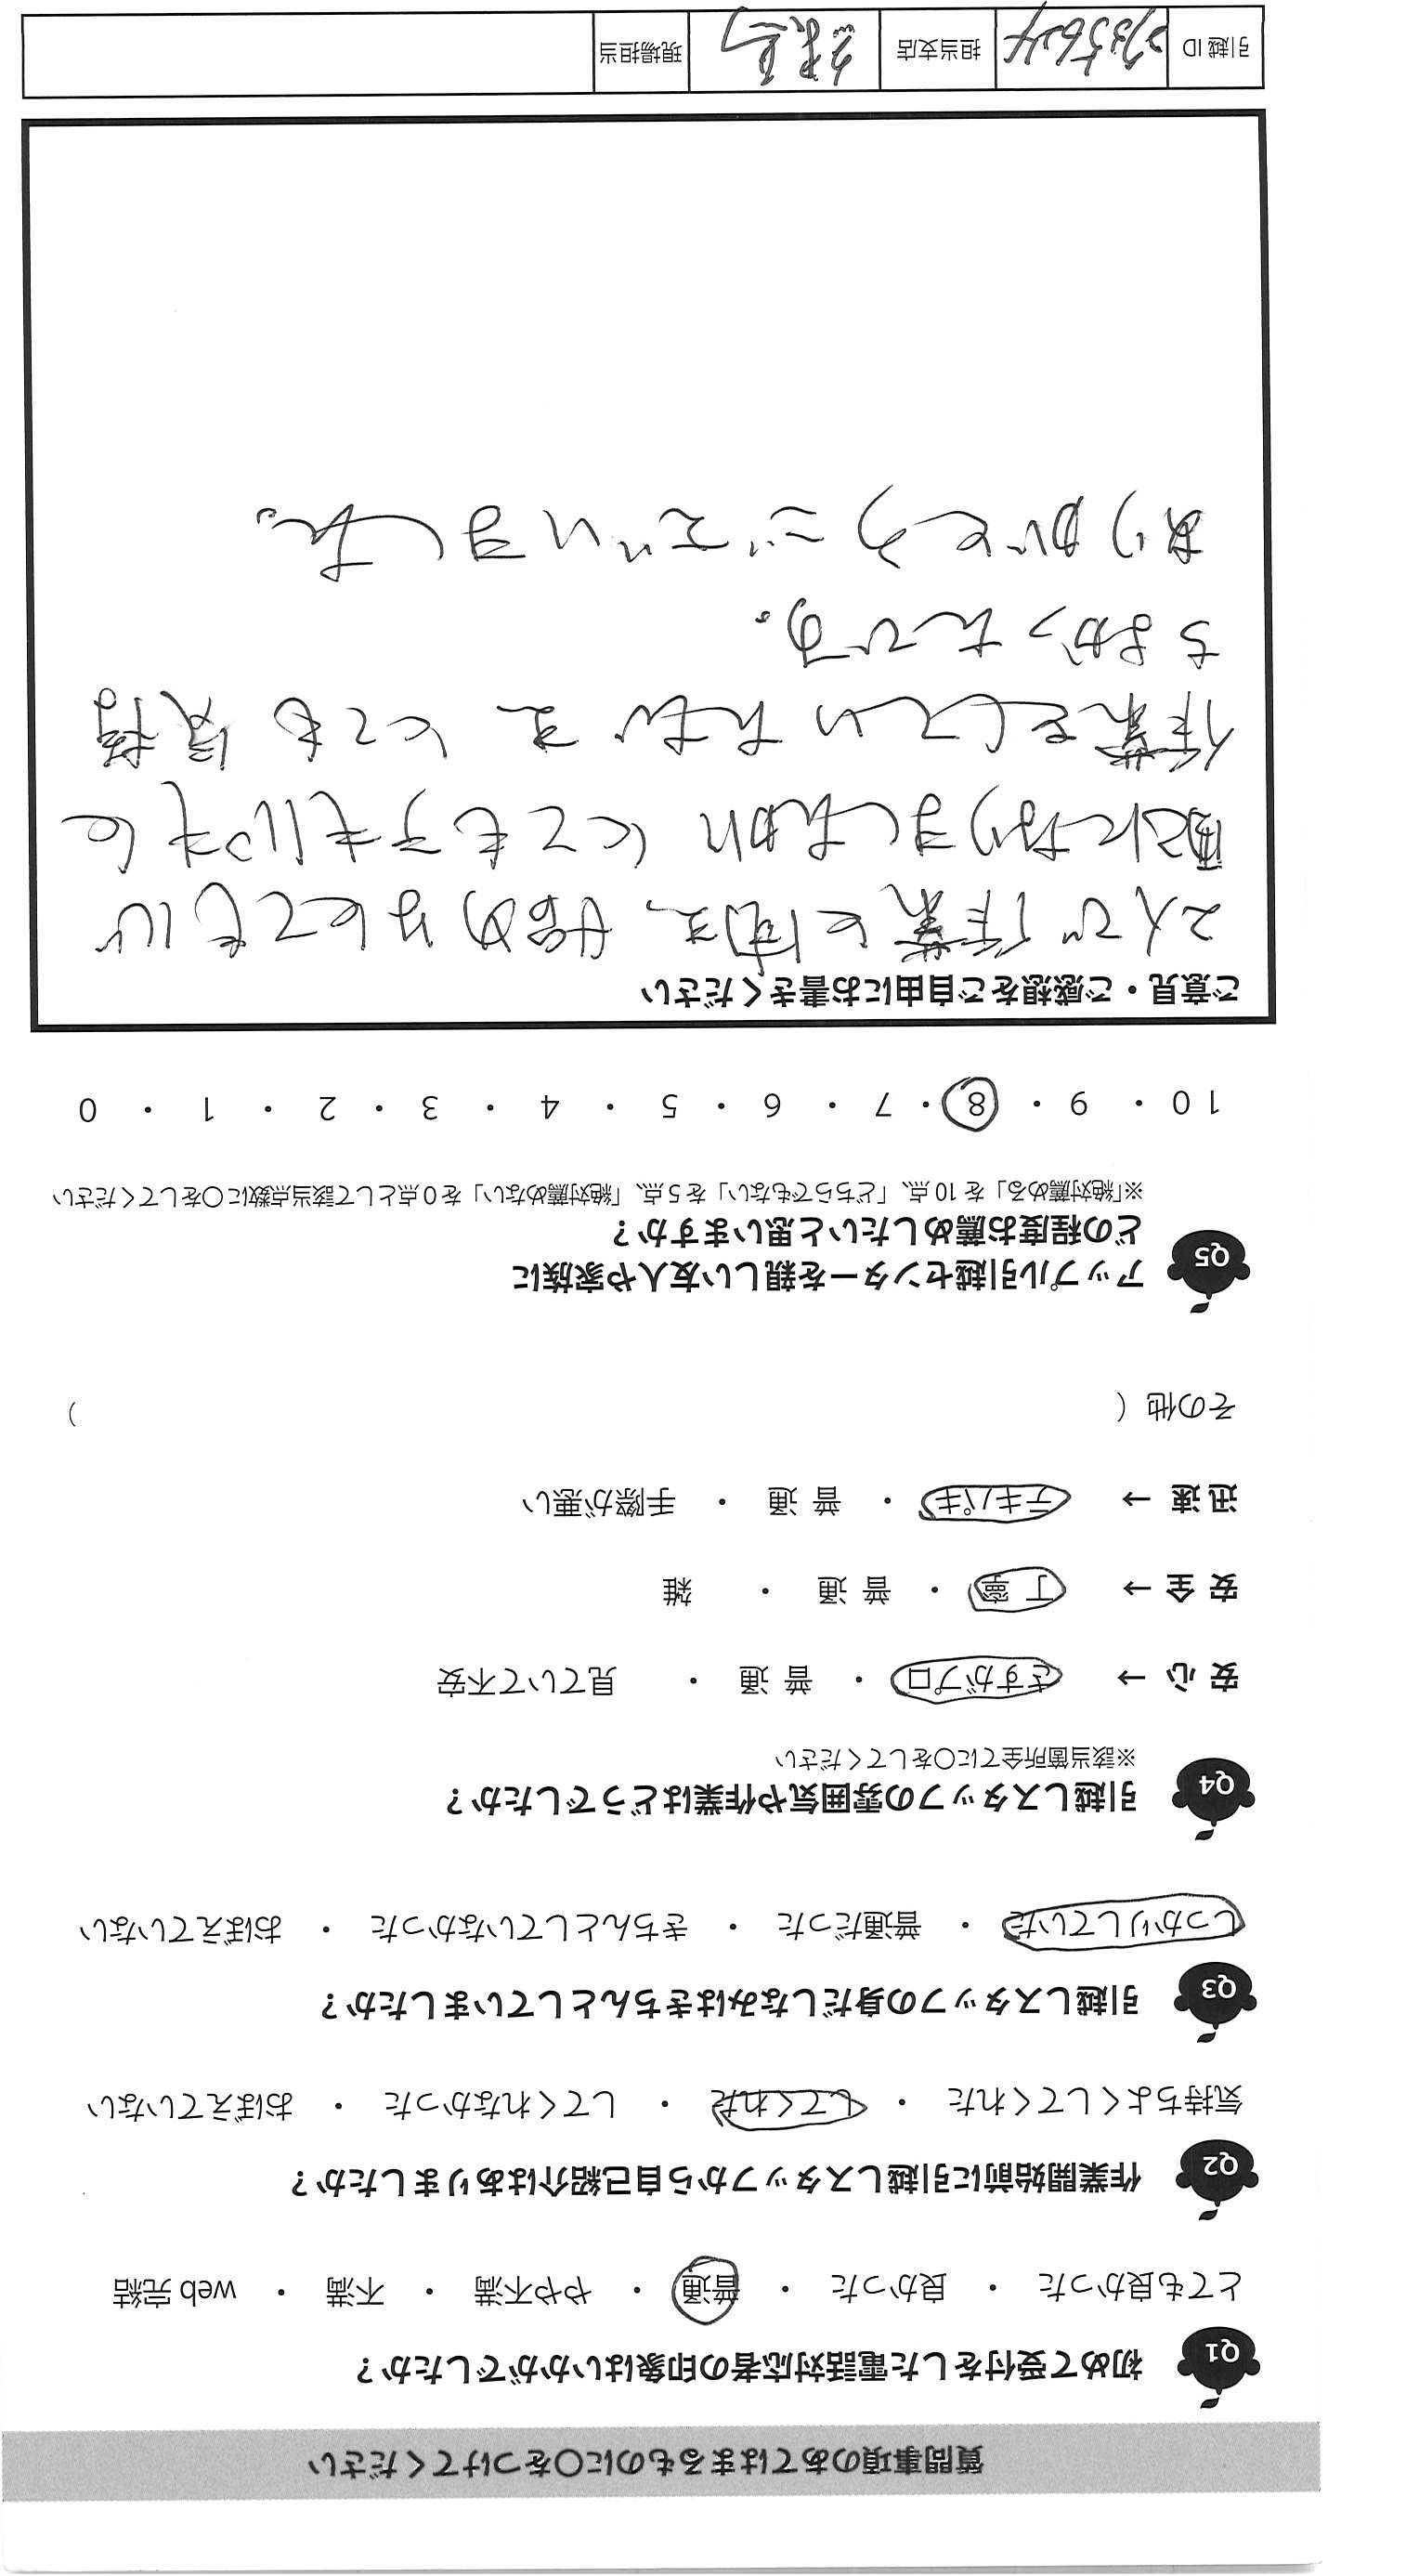 質問事項のあてはまるものに〇をつけてください
Q1 初めて受付をした電話対応者の印象はいかがでしたか?
とても良かった ・ 良かった ・ 普通 ・ やや不満 ・ 不満 ・ web 完結
Q2 作業開始前に引越しスタッフから自己紹介はありましたか?
気持ちよくしてくれた ・ してくれた ・ してくれなかった ・ おぼえていない
Q3 引越しスタッフの身だしなみはきちんとしていましたか?
しっかりしていた ・ 普通だった ・ きちんとしていなかった ・ おぼえていない
Q4 引越しスタッフの雰囲気や作業はどうでしたか?
※該当箇所全てに〇をしてください
安心 → さすがプロ ・ 普通 ・ 見ていて不安
安全 → 丁寧 ・ 普通 ・ 雑
迅速 → テキパキ ・ 普通 ・ 手際が悪い
その他 ( )
Q5 アップル引越センターを親しい友人や家族に
どの程度お薦めしたいと思いますか?
※「絶対薦める」を 10 点、「どちらでもない」を 5 点、「絶対薦めない」を 0 点として該当点数に〇をしてください
10 ・ 9 ・ 8 ・ 7 ・ 6 ・ 5 ・ 4 ・ 3 ・ 2 ・ 1 ・ 0
ご意見・ご感想をご自由にお書きください
2人で作業と聞き、始めはとても心
配になりましたが とてもテキパキと
作業をしていただき とても気持
ちよかったです。
ありがとうございました。
引越 ID 2735624 担当支店 現場担当